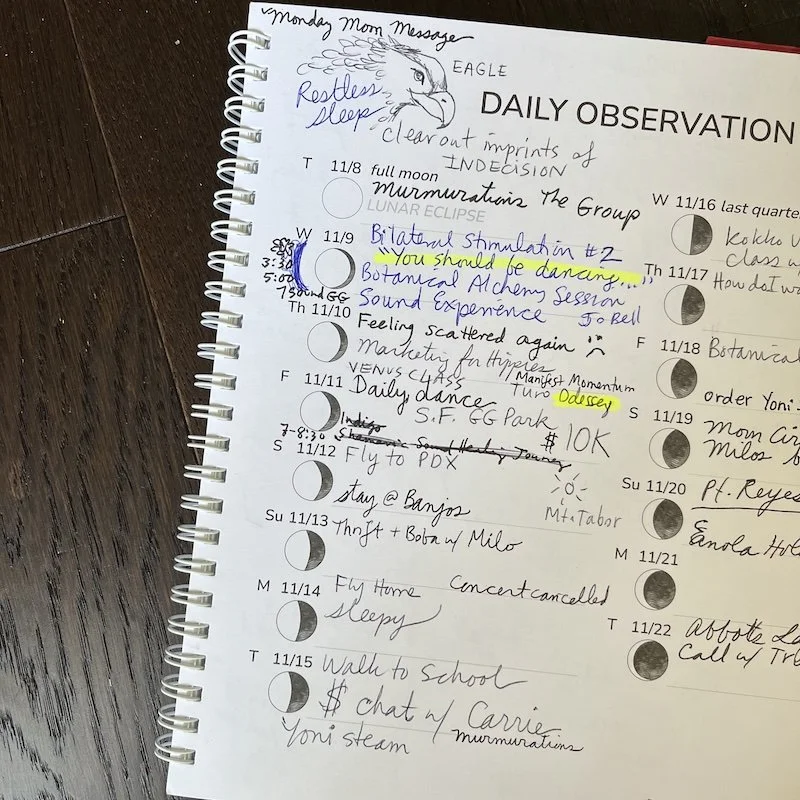 Monday Mom Message
EAGLE
Restless
Sleep
DAILY OBSERVATION
Clear out imprints of
INDECISION
T 11/8 full moon
Murmurations The Group
LUNAR ECLIPSE
W 11/9
Bilateral Stimulation #2
"You should be dancing..."
3:30
Botanical Alchemy Session
5:00
7 Sound GG
Sound Experience Jo Bell
Th 11/10
Feeling scattered again
Marketing for Hippies
VENUS CLASS
Manifest Momentum
F 11/11
Daily dance
Odessey
S.F. GG Park
$10K
Indigo
7-8:30 Shamanic Sound Healing Journey
S 11/12
Fly to PDX
stay @ Banjos
Mt. Tabor
Su 11/13
Thrift + Boba w/ Milo
M 11/14
Fly Home Concert cancelled
sleepy
T 11/15
Walk to School
$ chat w/ Carrie
Yoni steam murmurations
W 11/16 last quarte
Kokko
class w
Th 11/17
How do I wo
F 11/18
Botanical
order Yoni
S 11/19
Mom Cir
Milos
Su 11/20
Pt. Reyes
Enola Hol
M 11/21
T 11/22
Abbotts La
Call w/